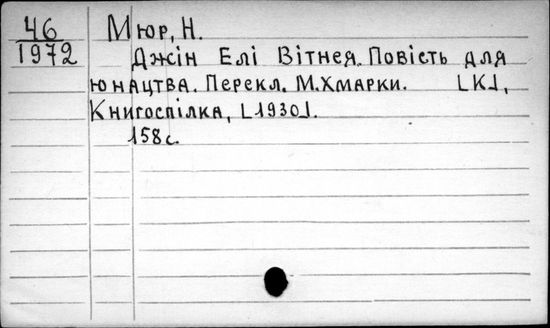 46
1972
Мюр, Н.
Джін Елі Вітнея. Повість для
юнацтва. Перекл. М. Хмарки. [К],
Книгоспілка, [1930].
158 с.